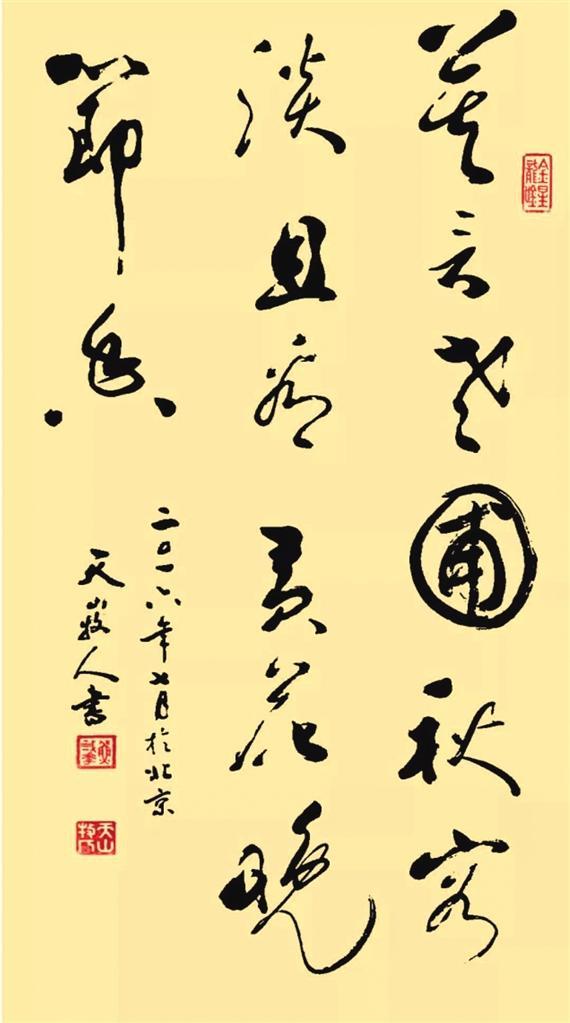 莫言老圃秋容
淡且看黄花晚
節香
二〇一六年七月於北京
天山牧人書